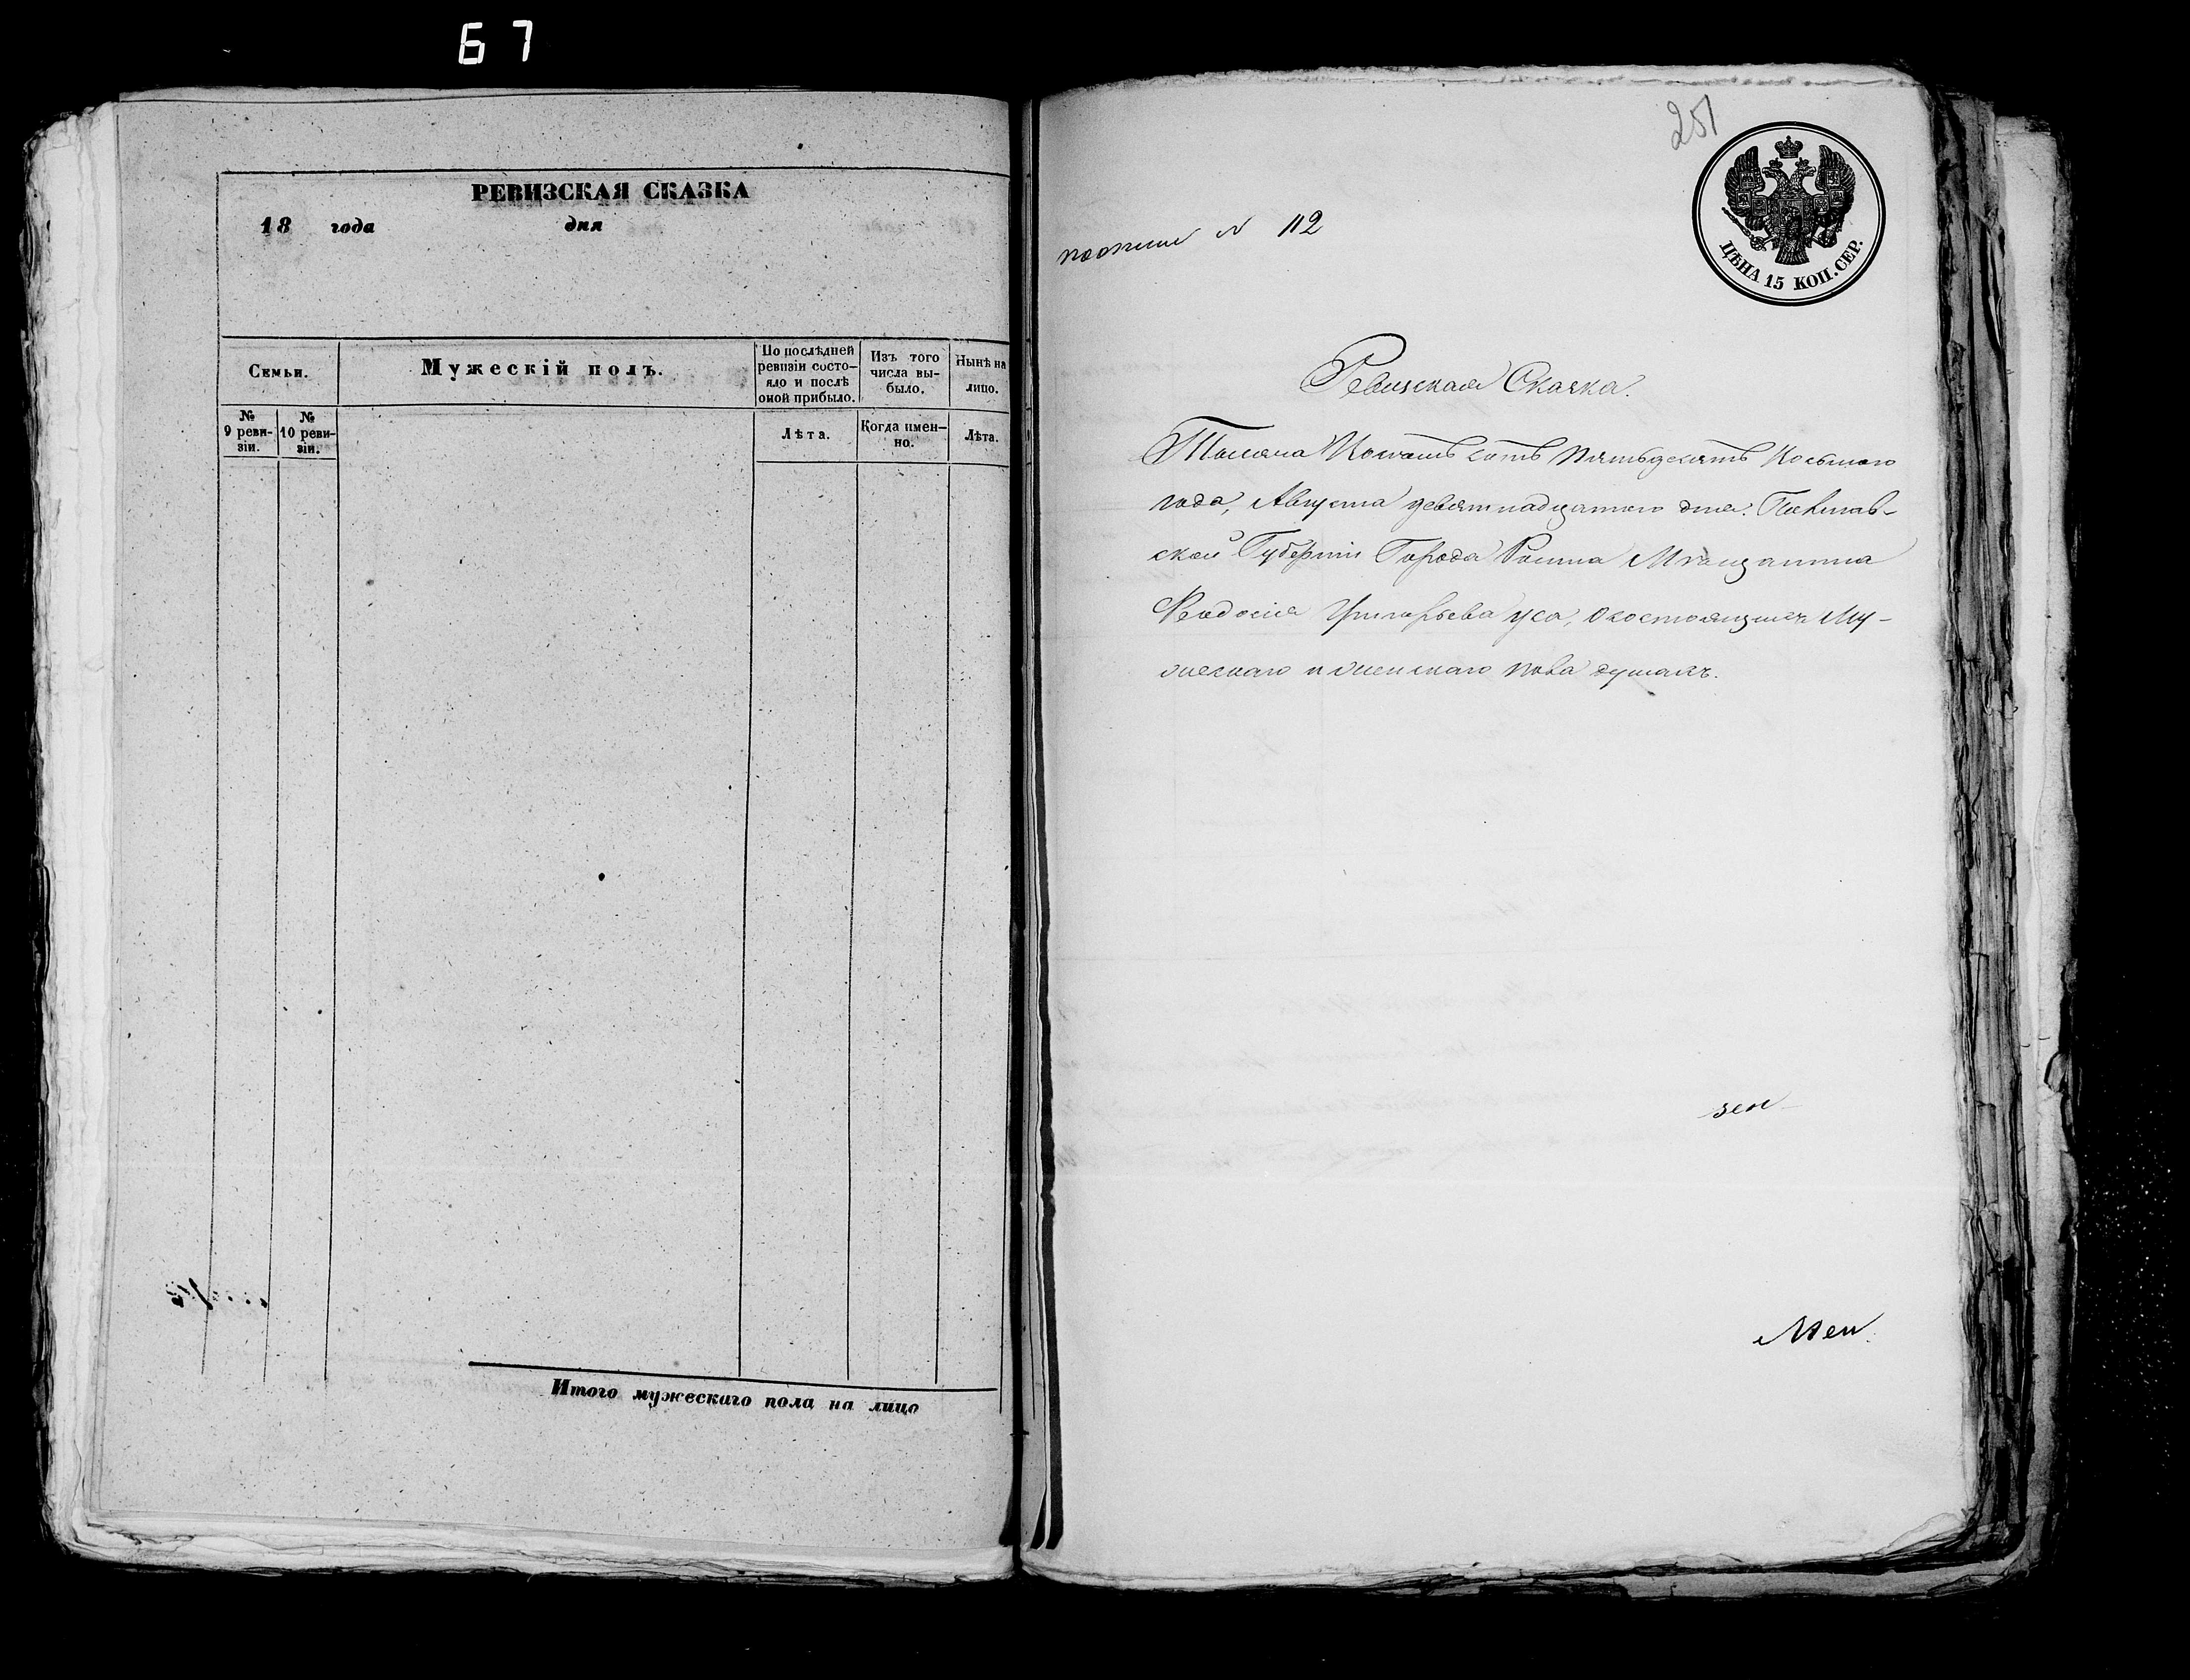 67
РЕВИЗСКАЯ СКАЗКА
18 года дня
Семьи.
Мужескій полъ.
По послѣдней ревизіи состо-
яло и послѣ
оной прибыло.
Изъ того
числа вы-
было.
Нынѣ на
лицо.
№
9 реви-
зіи.
№
10 реви-
зіи.
Лѣта.
Когда имен-
но.
Лѣта.
Итого мужескаго пола на лицо
251
ЦѢНА 15 КОП. СЕР.
№ 112
Ревизская Сказка.
Тысяча Восемь сотъ Пятьдесятъ Восьмаго
года, Августа девятнадцатого дня. Полтав-
ской Губерніи Города Ромна Мѣщанина
Феодосія Григорьева Уса, о состоящихъ му-
жескаго и женскаго пола душахъ.